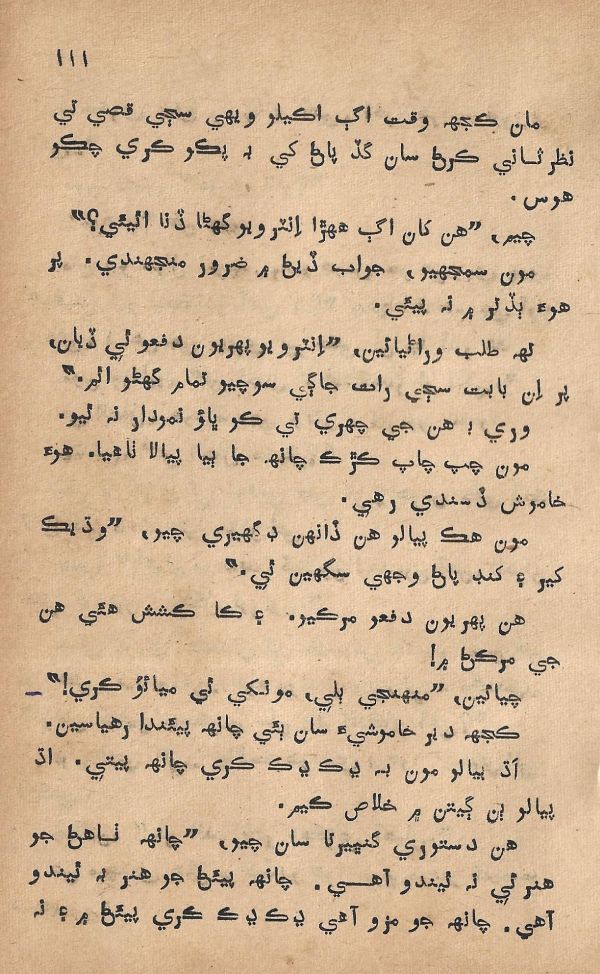 ۱۱۱
مان ڪجهہ وقت اڳ اڪيلو ويهي سڄي قصي تي
نظرثاني ڪرڻ سان گڏ پاڻ کي بہ پڪو ڪري چڪو
هوس.
چيم، ”هن کان اڳ ههڙا اِنٽرويو گهڻا ڏنا اٿيئي؟“
مون سمجهيو، جواب ڏيڻ ۾ ضرور منجهندي. پر
هوءَ ٻڏتر ۾ نہ پيئي.
تهہ طلب ورائيائين، ”اِنٽرويو پهريون دفعو ئي ڏيان،
پر اِن بابت سڄي رات جاڳي سوچيو تمام گهڻو اٿم.“
وري بہ هن جي چهري تي ڪو ڀاؤ نمودار نہ ٿيو.
مون چپ چاپ ڪڙڪ چانهہ جا ٻيا پيالا ٺاهيا. هوءَ
خاموش ڏسندي رهي.
مون هڪ پيالو هن ڏانهن ڌڪيندي چيو، ”وڌيڪ
کير ۽ کنڊ پاڻ وجهي سگهين ٿي.“
هن پهريون دفعو مرڪيو. ۽ ڪا ڪشش هئي هن
جي مرڪڻ ۾!
چيائين، ”منهنجي ٻلي، مونکي ئي مياؤن ڪري!“
ڪجهہ دير خاموشيءَ سان ٻئي چانهہ پيئندا رهياسين.
اَڌ پيالو مون بہ ڍڪ ڍڪ ڪري چانهہ پيتي. اڌ
پيالو ٻن ڳيتن ۾ خلاص ڪيم.
هن دستوري گنڀيرتا سان چيو، ”چانهہ ٺاهڻ جو
هنر ئي نہ ٿيندو آهي. چانهہ پيئڻ جو هنر بہ ٿيندو
آهي. چانهہ جو مزو آهي ڍڪ ڍڪ ڪري پيئڻ ۾ ۽ نہ